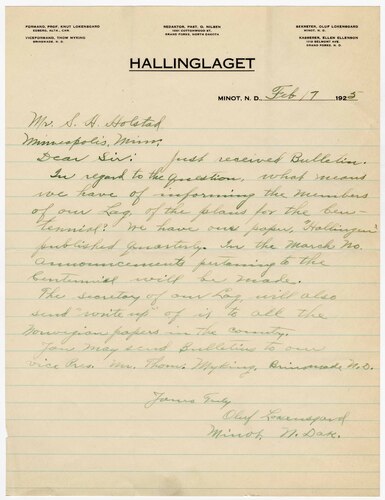 FORMAND, PROF. KNUT LOKENSGARD
EDBERG, ALTA., CAN.
VICEFORMAND, THOM MYKING
BRINSMADE, N. D.
REDAKTOR, PAST. O. NILSEN
1001 COTTONWOOD ST.
GRAND FORKS, NORTH DAKOTA
SEKRETER, OLUF LOKENSGARD
MINOT, N. D.
KASSERER, ELLEN ELLENSON
1113 BELMONT AVE.
GRAND FORKS, N. D.
HALLINGLAGET
MINOT, N. D., Feb 17 1925
Mr. S. H. Holstad
Minneapolis, Minn,
Dear Sir: Just received Bulletin.
In regard to the question, what means
we have of informing the members
of our Lag, of the plans for the Cen-
tennial? We have our paper, "Hallingen"
published quarterly. In the March No.
announcements pertaining to the
Centennial will be made.
The secretary of our Lag will also
send "write up" of it to all the
Norwegian papers in the county.
You may send Bulletin to our
vice Pres. Mr. Thom. Myking, Brinsmade N.D.
Yours Truly
Oluf Lokensgard
Minot, N. Dak.